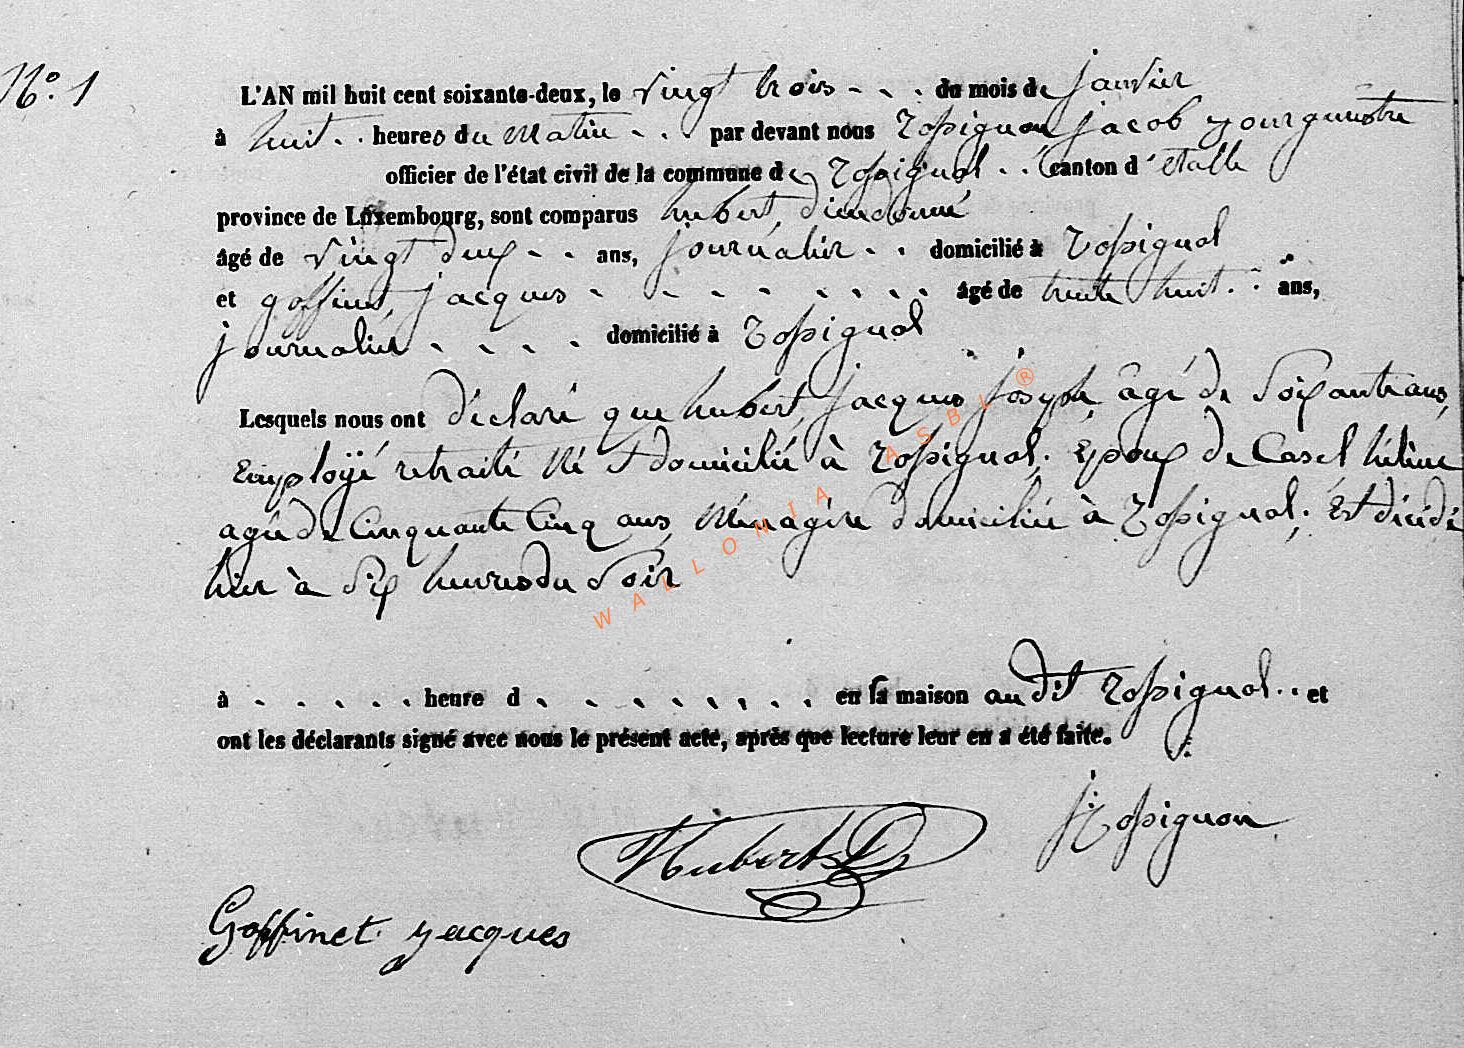 N°. 1
L'AN mil huit cent soixante-deux, le vingt trois - - - du mois de janvier
à huit - - heures du matin - - par devant nous Rossignon jacob Bourgmestre
officier de l'état civil de la commune de Rossignol - - Canton d'étalle
province de Luxembourg, sont comparus hubert, dieudonné
âgé de vingt deux - - ans, journalier - - domicilié à Rossignol
et goffinet, jacques - - - - - - - - âgé de trente huit - - ans,
journalier - - - - domicilié à Rossignol
Lesquels nous ont déclaré que hubert, jacques joseph, âgé de Soixante ans,
Employé retraité Né et domicilié à Rossignol, Epoux de Casel hélène
agée de Cinquante Cinq ans, Ménagère domiciliée à Rossignol; Est décédé
hier à Six heures du Soir
à - - - - - heure d - - - - - - - - en sa maison audit Rossignol - - et
ont les déclarants signé avec nous le présent acte, après que lecture leur en a été faite.
JRossignon
Hubert D
Goffinet jacques
WALLONIA ASBL ®